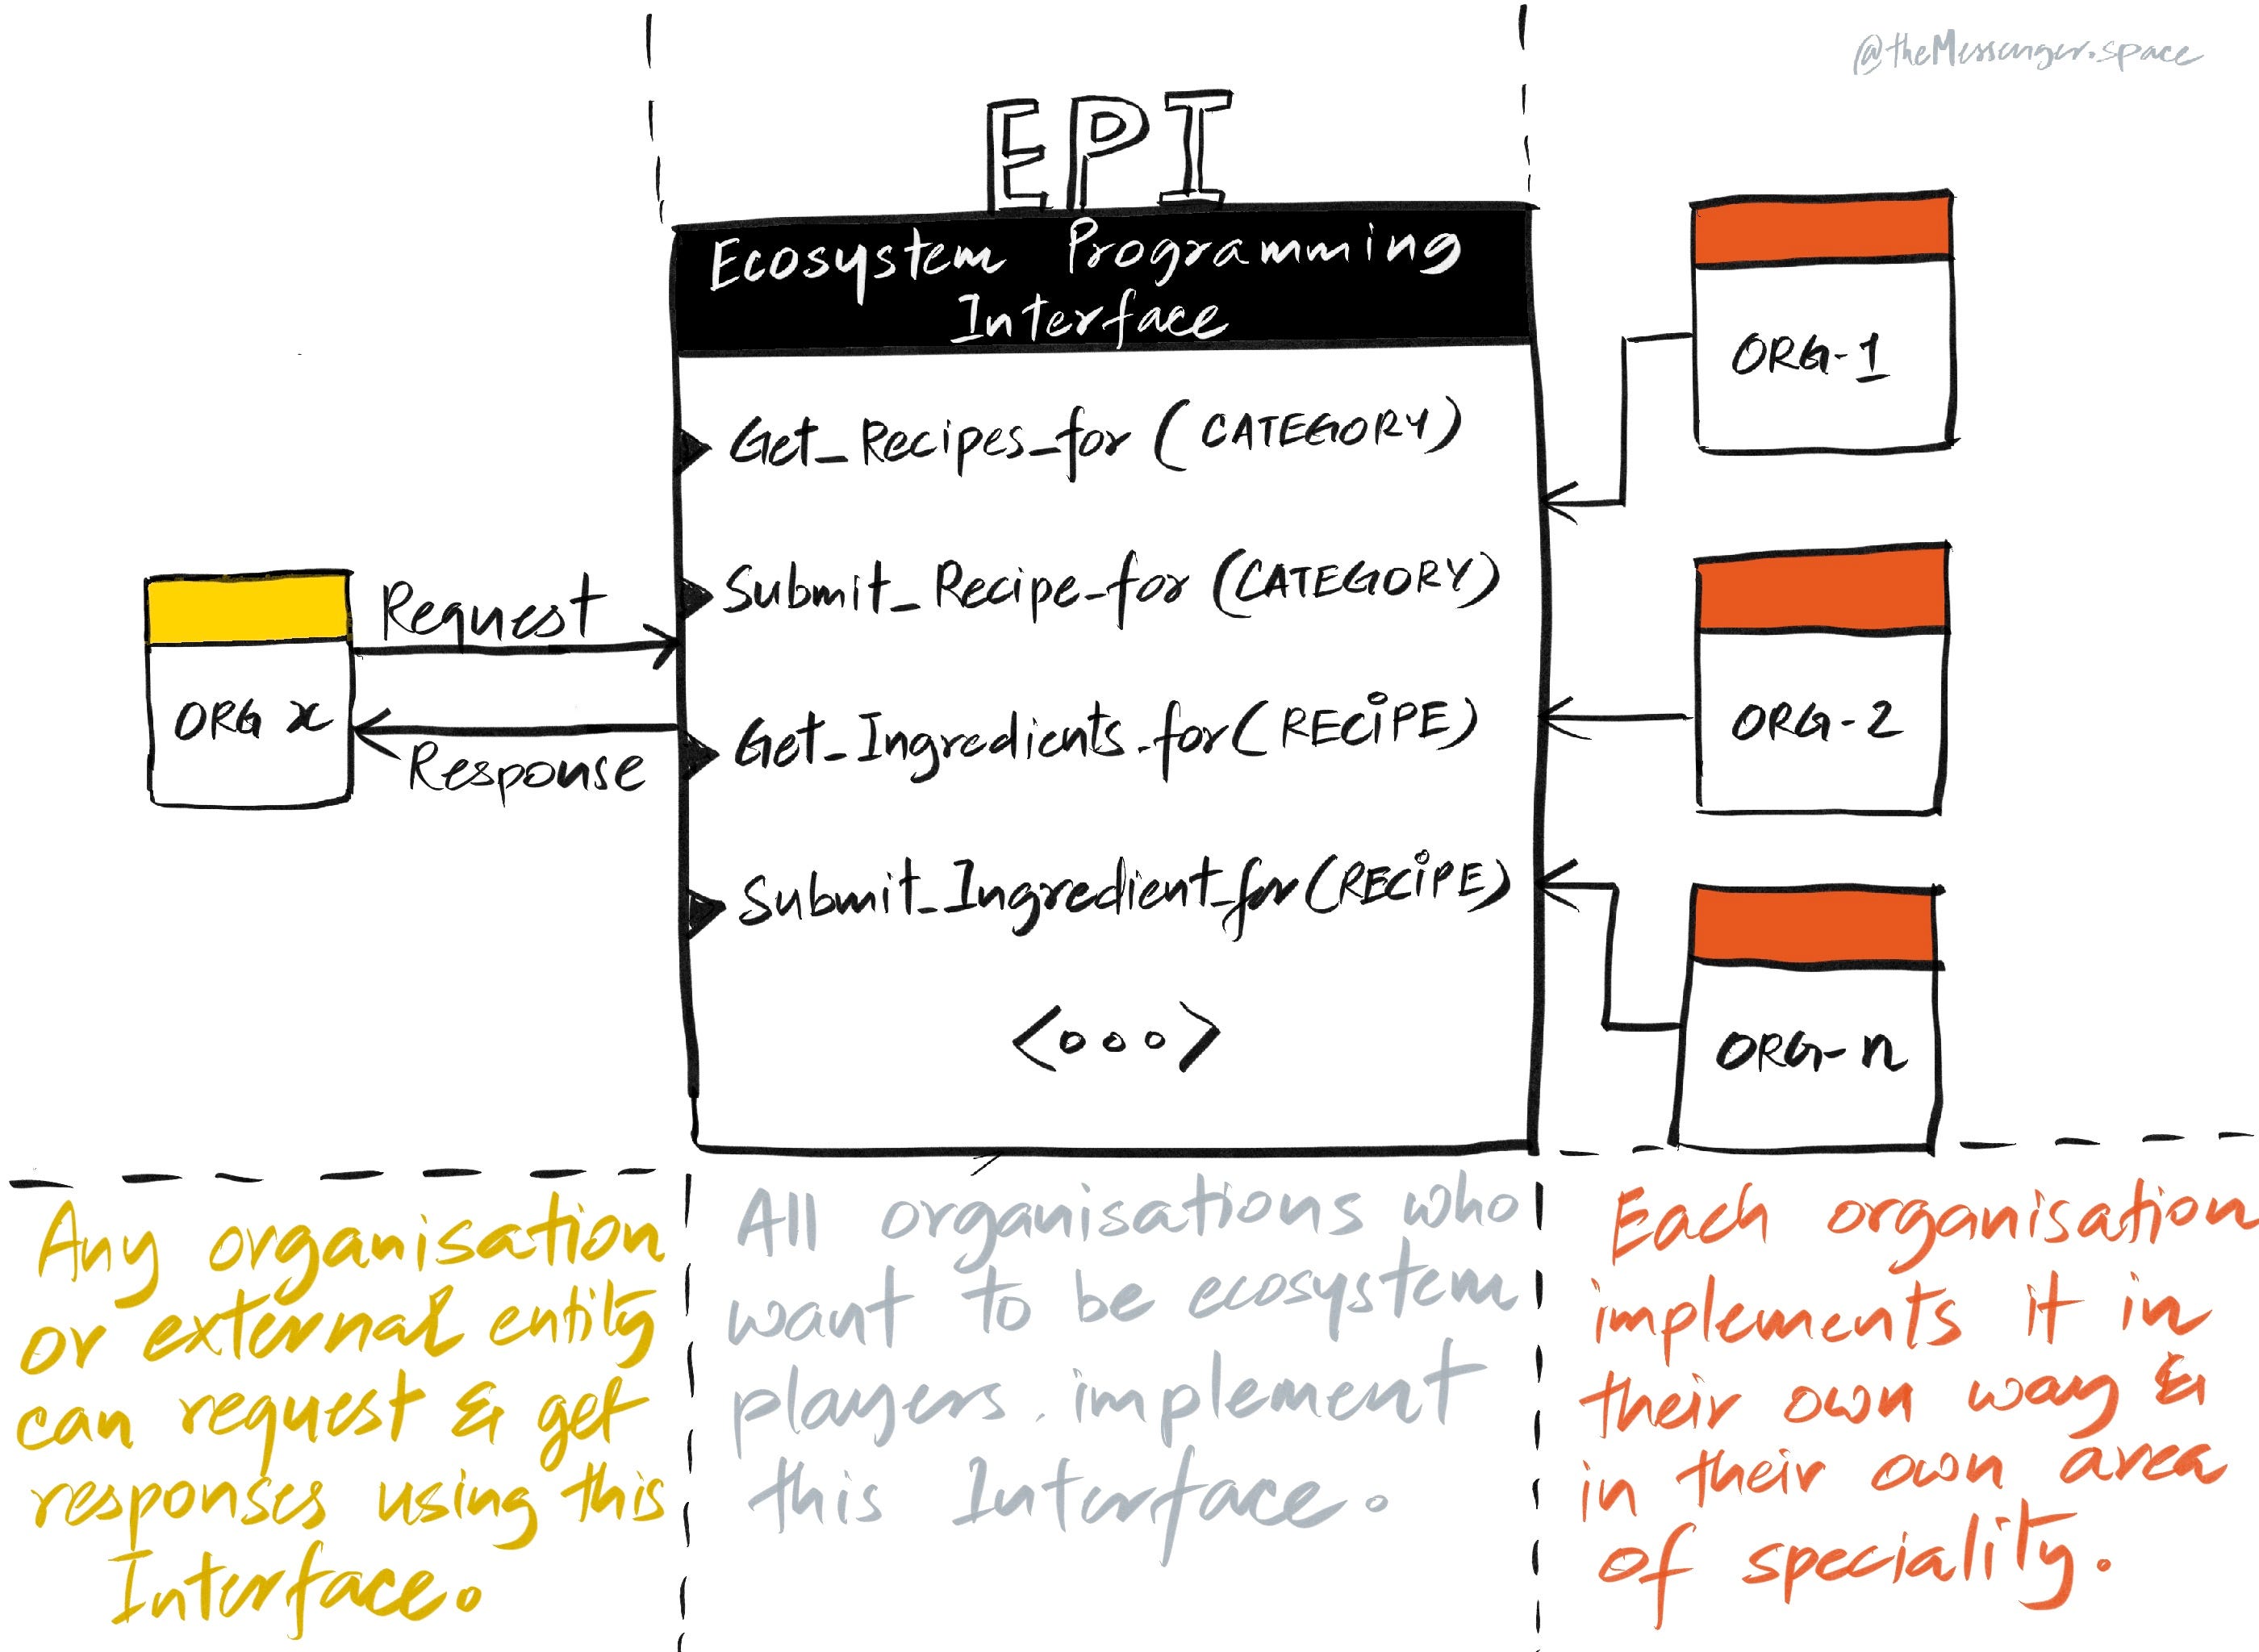 @theMessenger.space
EPI
Ecosystem Programming
Interface
Get_Recipes_for (CATEGORY)
Submit_Recipe_for (CATEGORY)
Get_Ingredients_for (RECiPE)
Submit_Ingredient_for (RECiPE)
<ooo>
ORG x
Request
Response
ORG-1
ORG-2
ORG-n
Any organisation
or external entity
can request & get
responses using this
Interface.
All organisations who
want to be ecosystem
players, implement
this Interface.
Each organisation
implements it in
their own way &
in their own area
of speciality.